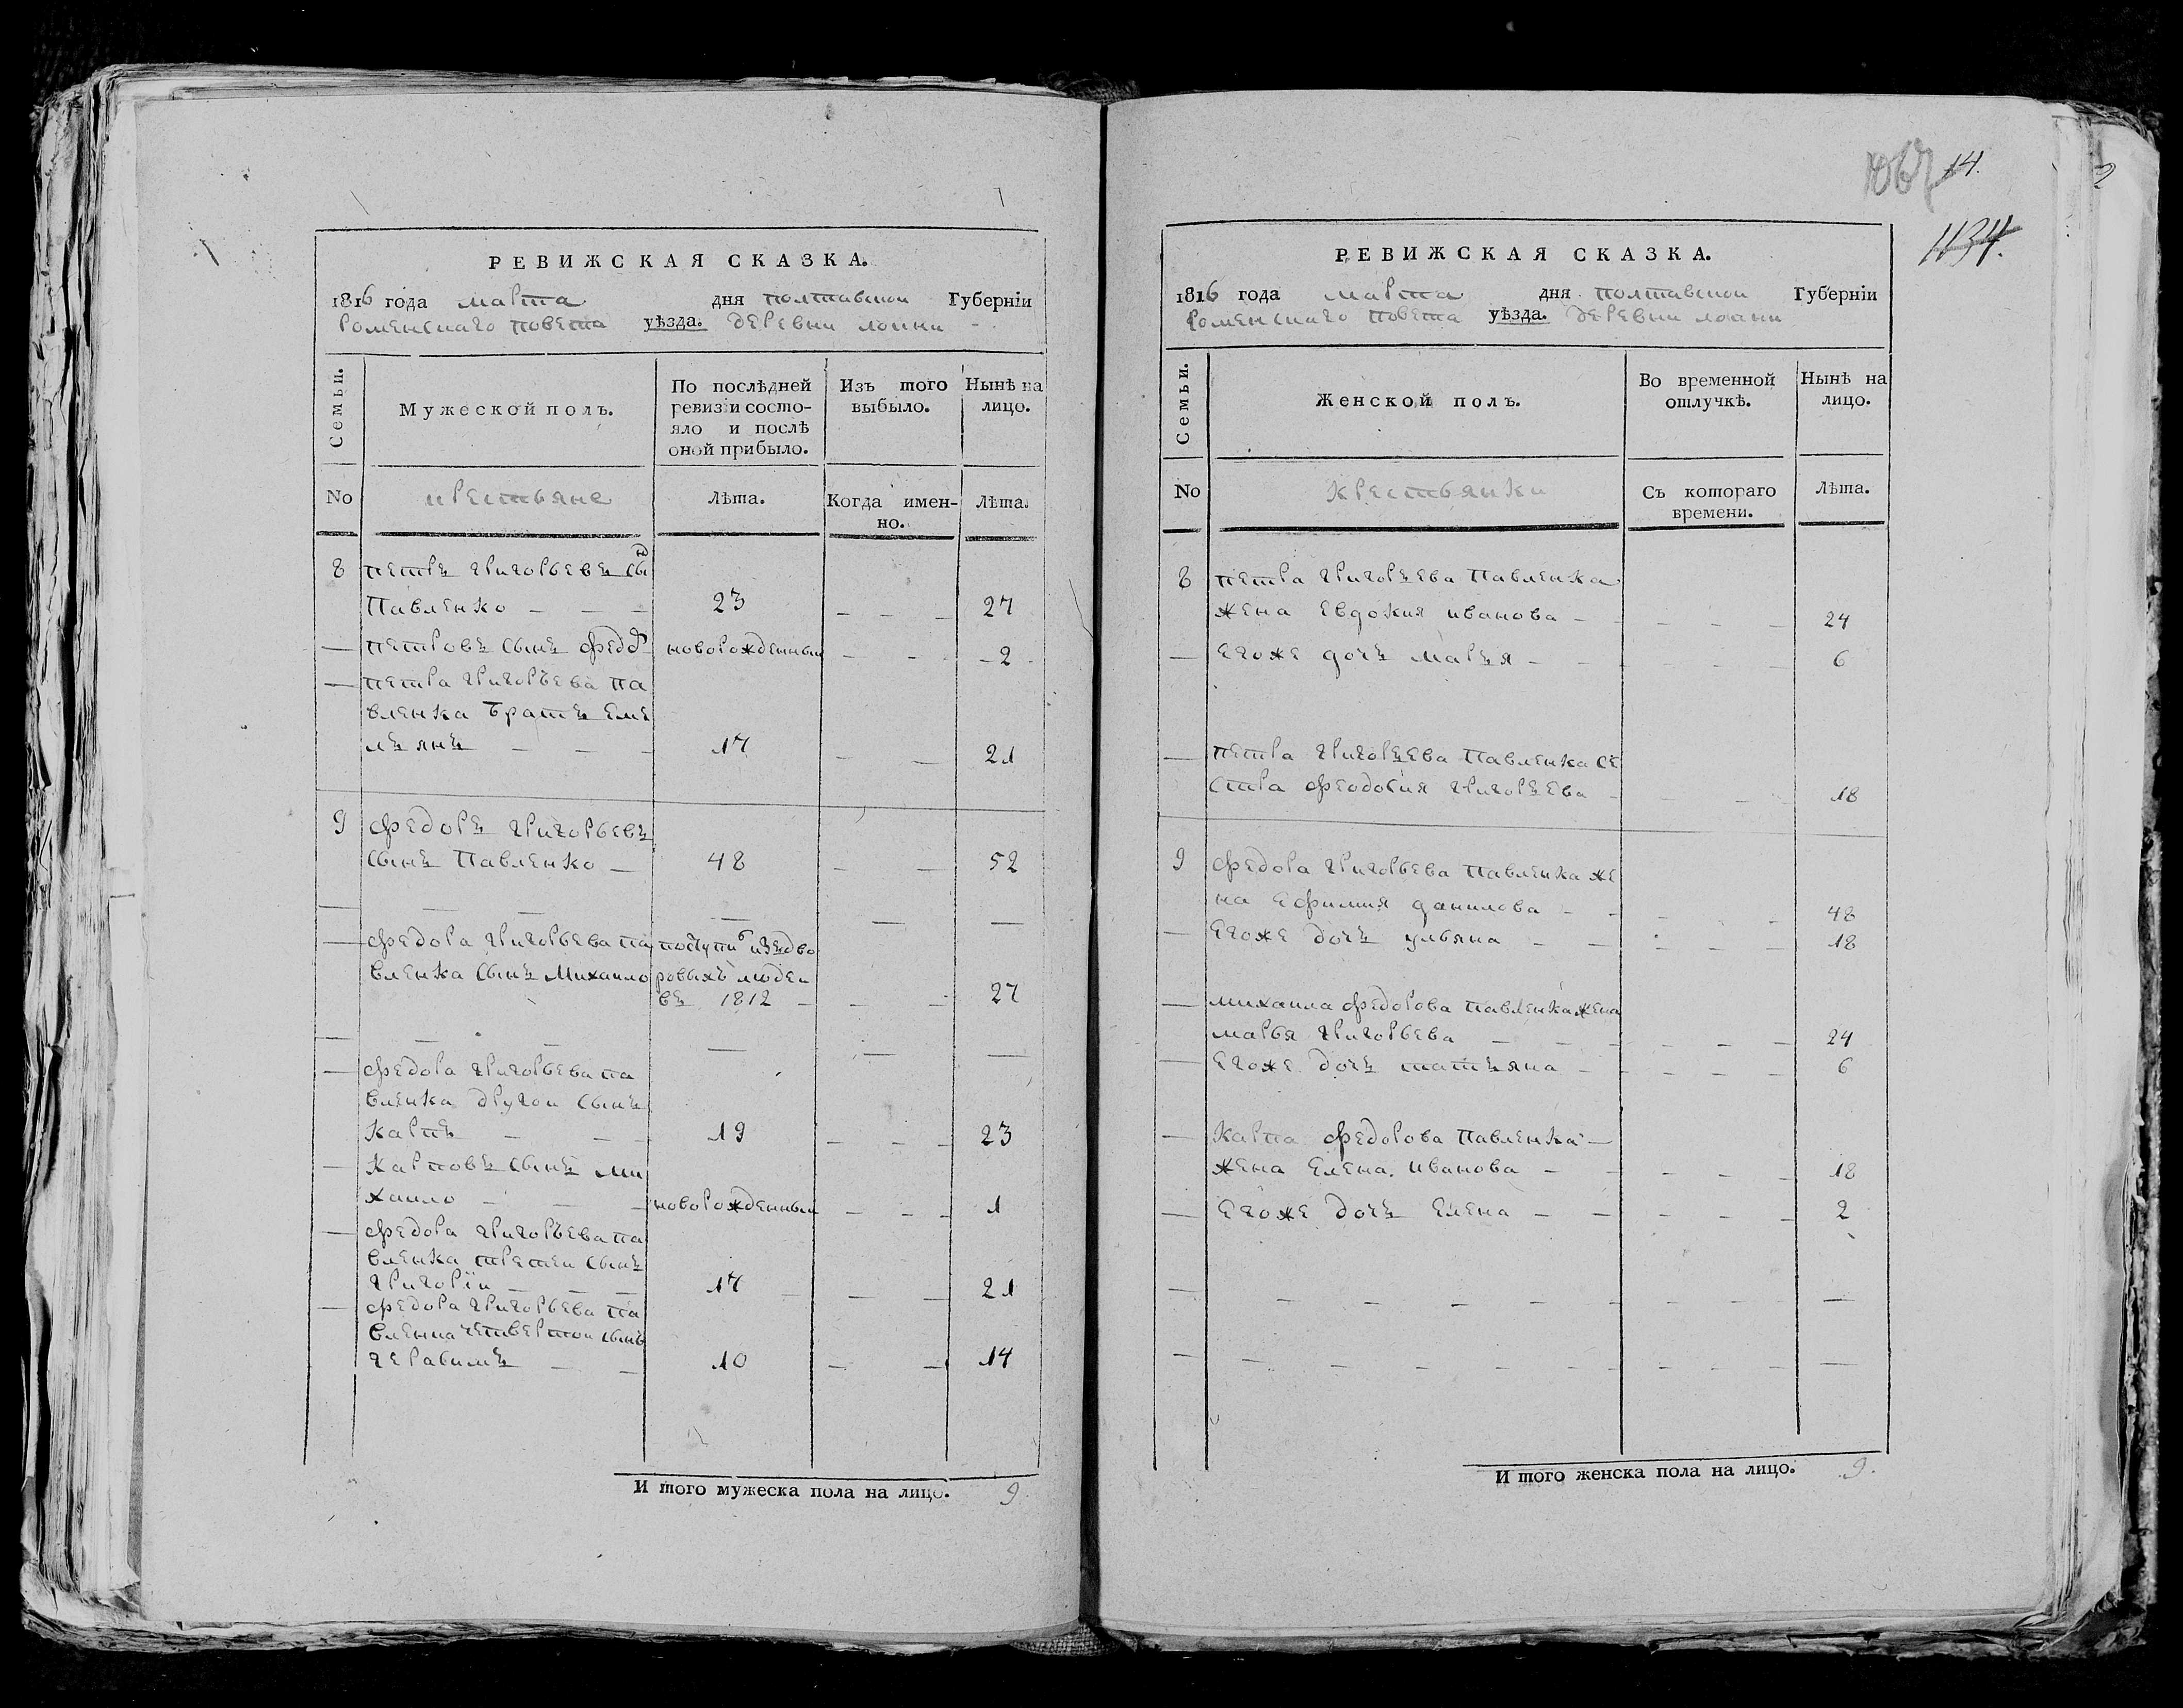 РЕВИЖСКАЯ СКАЗКА.
1816 года марта дня полтавской Губерніи
роменскаго повета уѣзда. деревни
Семьи.
Мужеской полъ.
По послѣдней ревизіи состояло и послѣ оной прибыло.
Изъ того выбыло.
Нынѣ на лицо.
No крестьяне Лѣта. Когда именно. Лѣта.
8 петръ григорьевъ сынъ
Павленко — — — 23 — — — 27
— петровъ сынъ федоръ новорожденный — — — 2
— петра григоръева па
вленка братъ еме
лъянъ — — — 17 — — 21
9 федоръ григорьевъ
сынъ Павленко — 48 — — 52
— — — — — —
— федора григорьева па поступилъ изъдво
вленка сынъ михаило ровыхъ людей
въ 1812 — — — 27
— — — — — —
— федора григорьева па
вленка другой сынъ
карпъ — — — 19 — — — 23
— карповъ сынъ ми
хаило — — — новорожденный — — — 1
— федора григоръева па
вленка третей сынъ
григорій — — — 17 — — — 21
— федора григорьева па
вленка четвертой сынъ
герасимъ — — 10 — — 14
И того мужеска пола на лицо. 9
14.
1134.
РЕВИЖСКАЯ СКАЗКА.
1816 года марта дня полтавской Губерніи
роменскаго повета уѣзда. деревни
Семьи.
Женской полъ.
Во временной отлучкѣ.
Нынѣ на лицо.
No крестьянки Съ котораго времени. Лѣта.
8 петра григоръева Павленка
жена евдокия иванова — — — — 24
— егоже дочъ маръя — — — — — 6
— петра григоръева Павленка се
стра феодосия григоръева — — — 18
9 федора григорьева Павленка же
на ефимия данилова — — — — 48
— егоже дочъ ульяна — — — — — 18
— михаила федорова Павленка жена
марья григорьева — — — — — — 24
— егоже дочъ татъяна — — — — — 6
— карпа федорова Павленка —
жена елена иванова — — — — — 18
— егоже дочъ елена — — — — — 2
— — — — — — — — —
— — — — — — — — —
И того женска пола на лицо. 9.